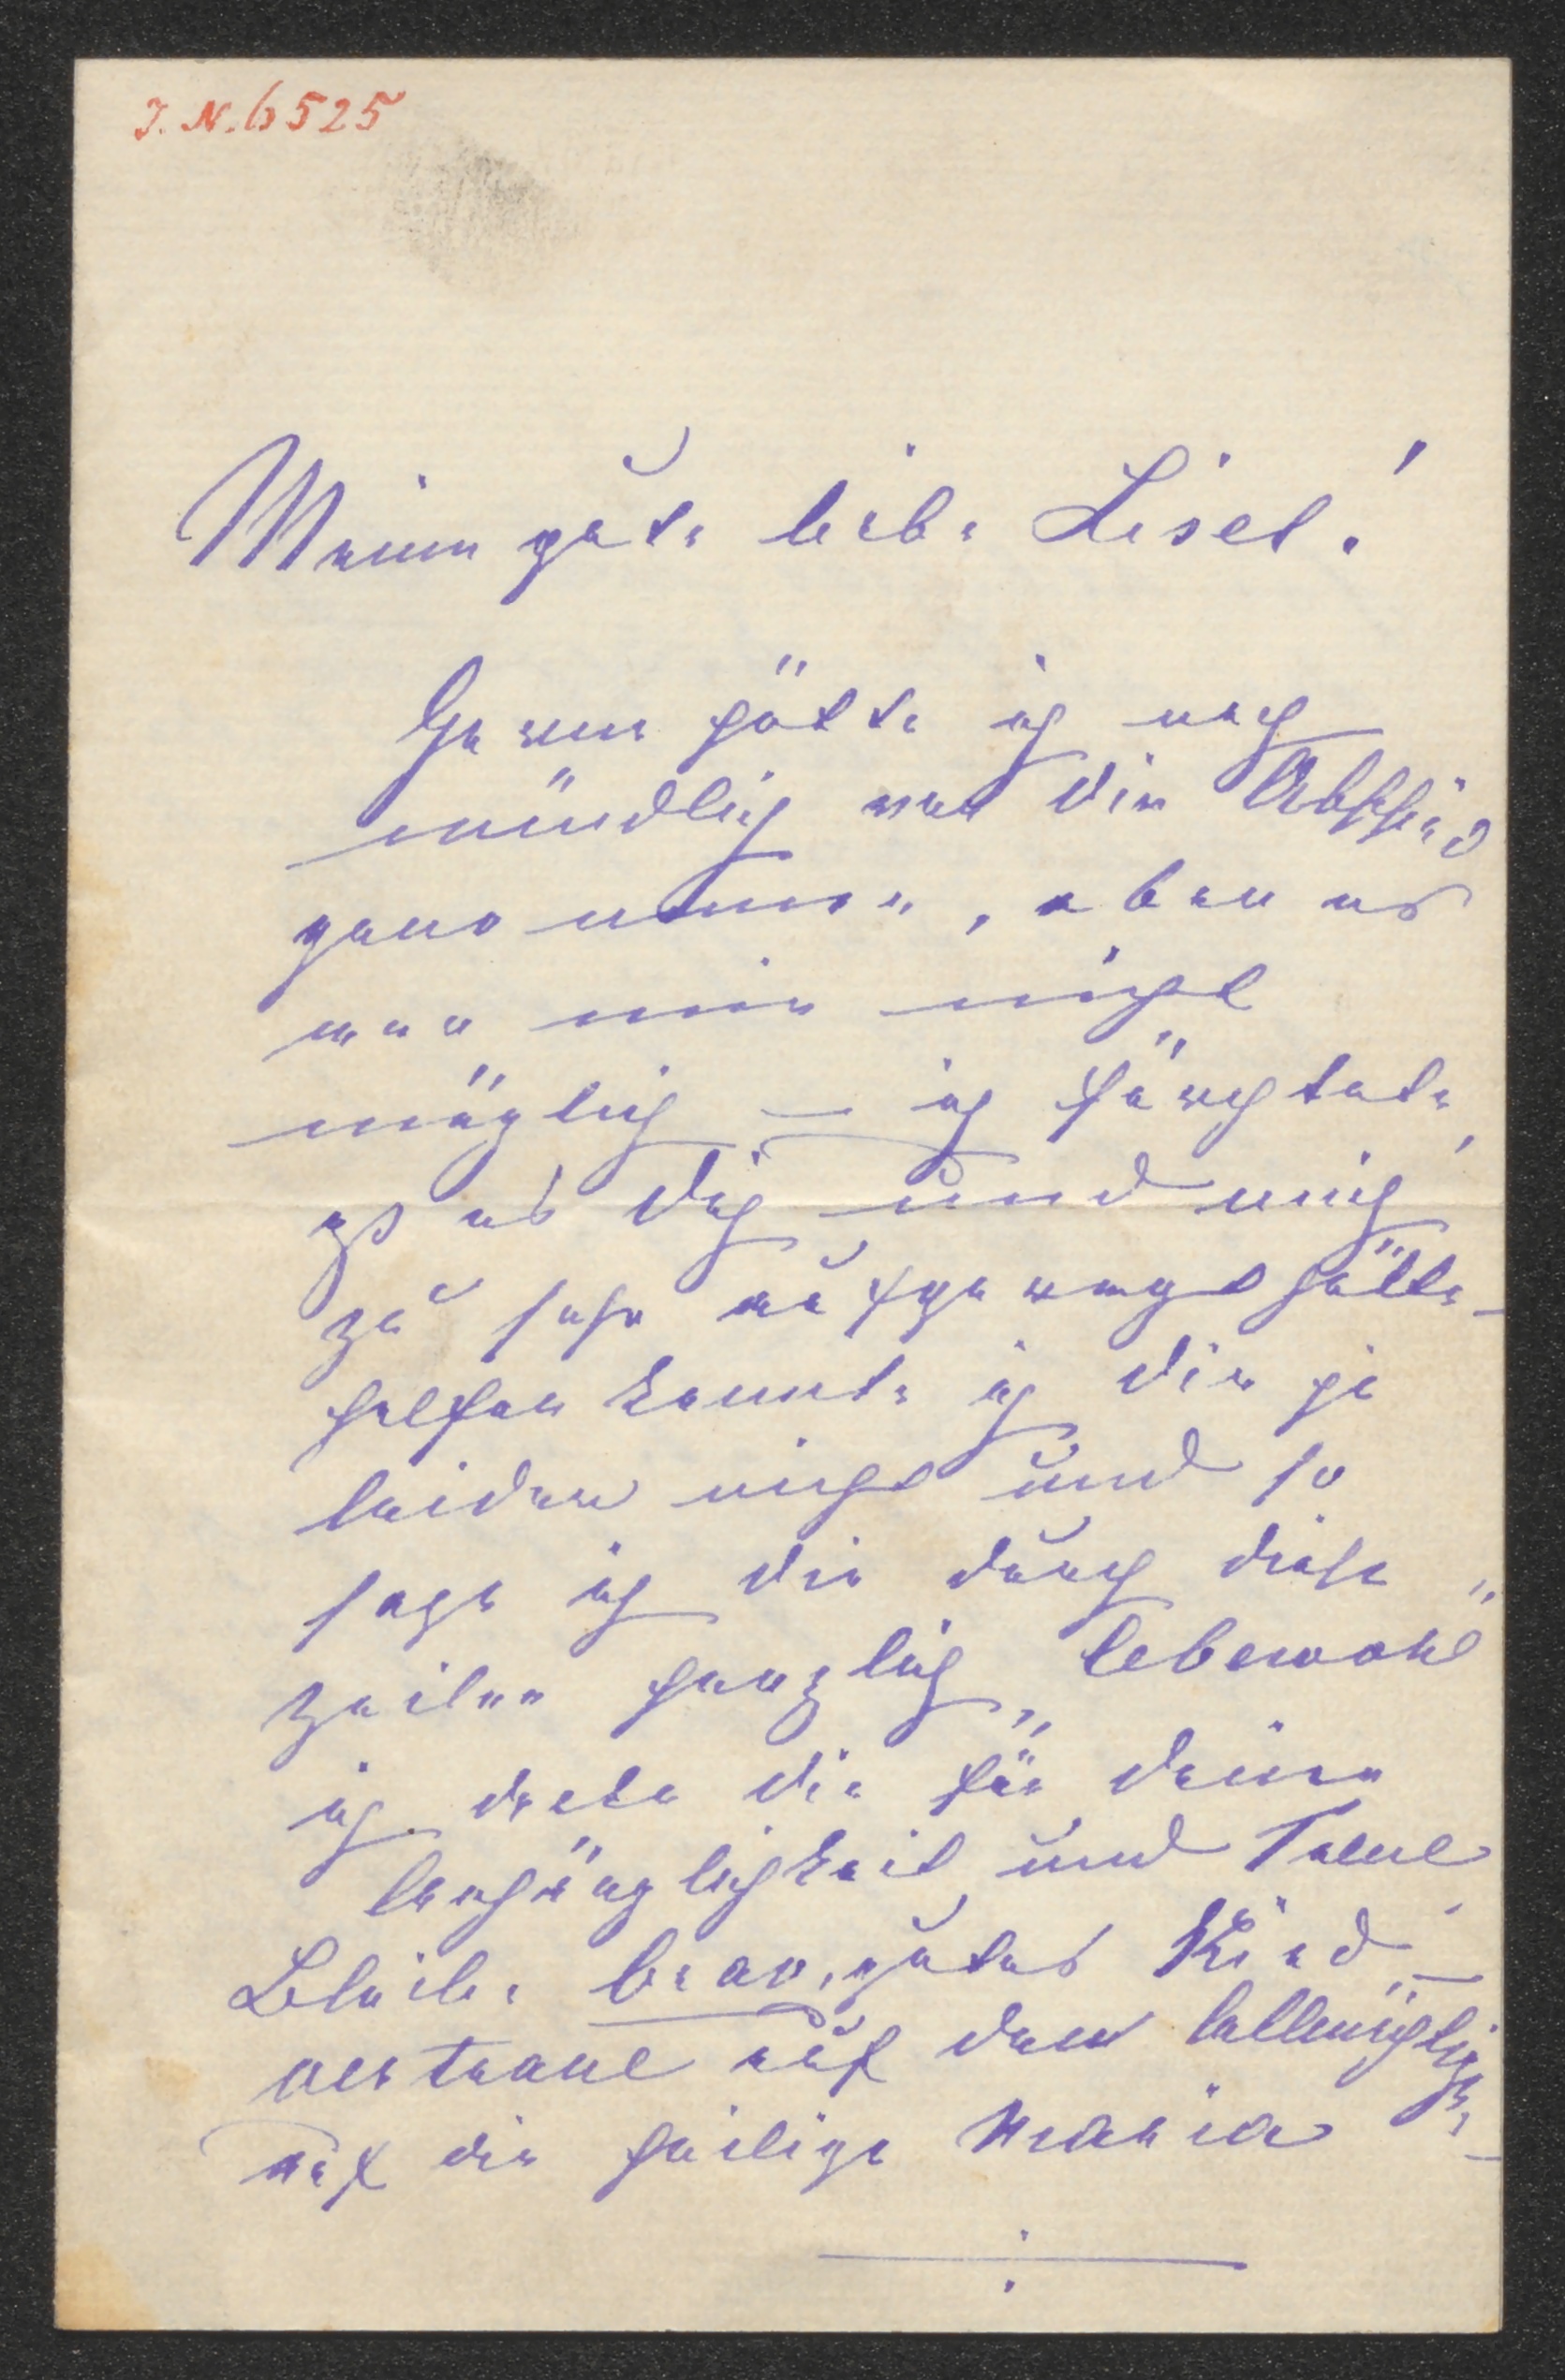 J. N. 6525
Meine gute liebe Lisel!
Gerne hätte ich noch
mündlich von dir Abschied
genommen, aber es
war mir nicht
möglich – ich fürchtete,
es dich und mich
zu sehr aufgeregt hätte –
helfen konnte ich dir ja
leider nicht und so
sage ich dir durch diese
Zeilen herzlich „Lebewohl"
ich danke dir für deine
Anhänglichkeit und Treue
Bleibe brav, gutes Kind –
vertraue auf den Allmächtigen,
auf die heilige Maria –